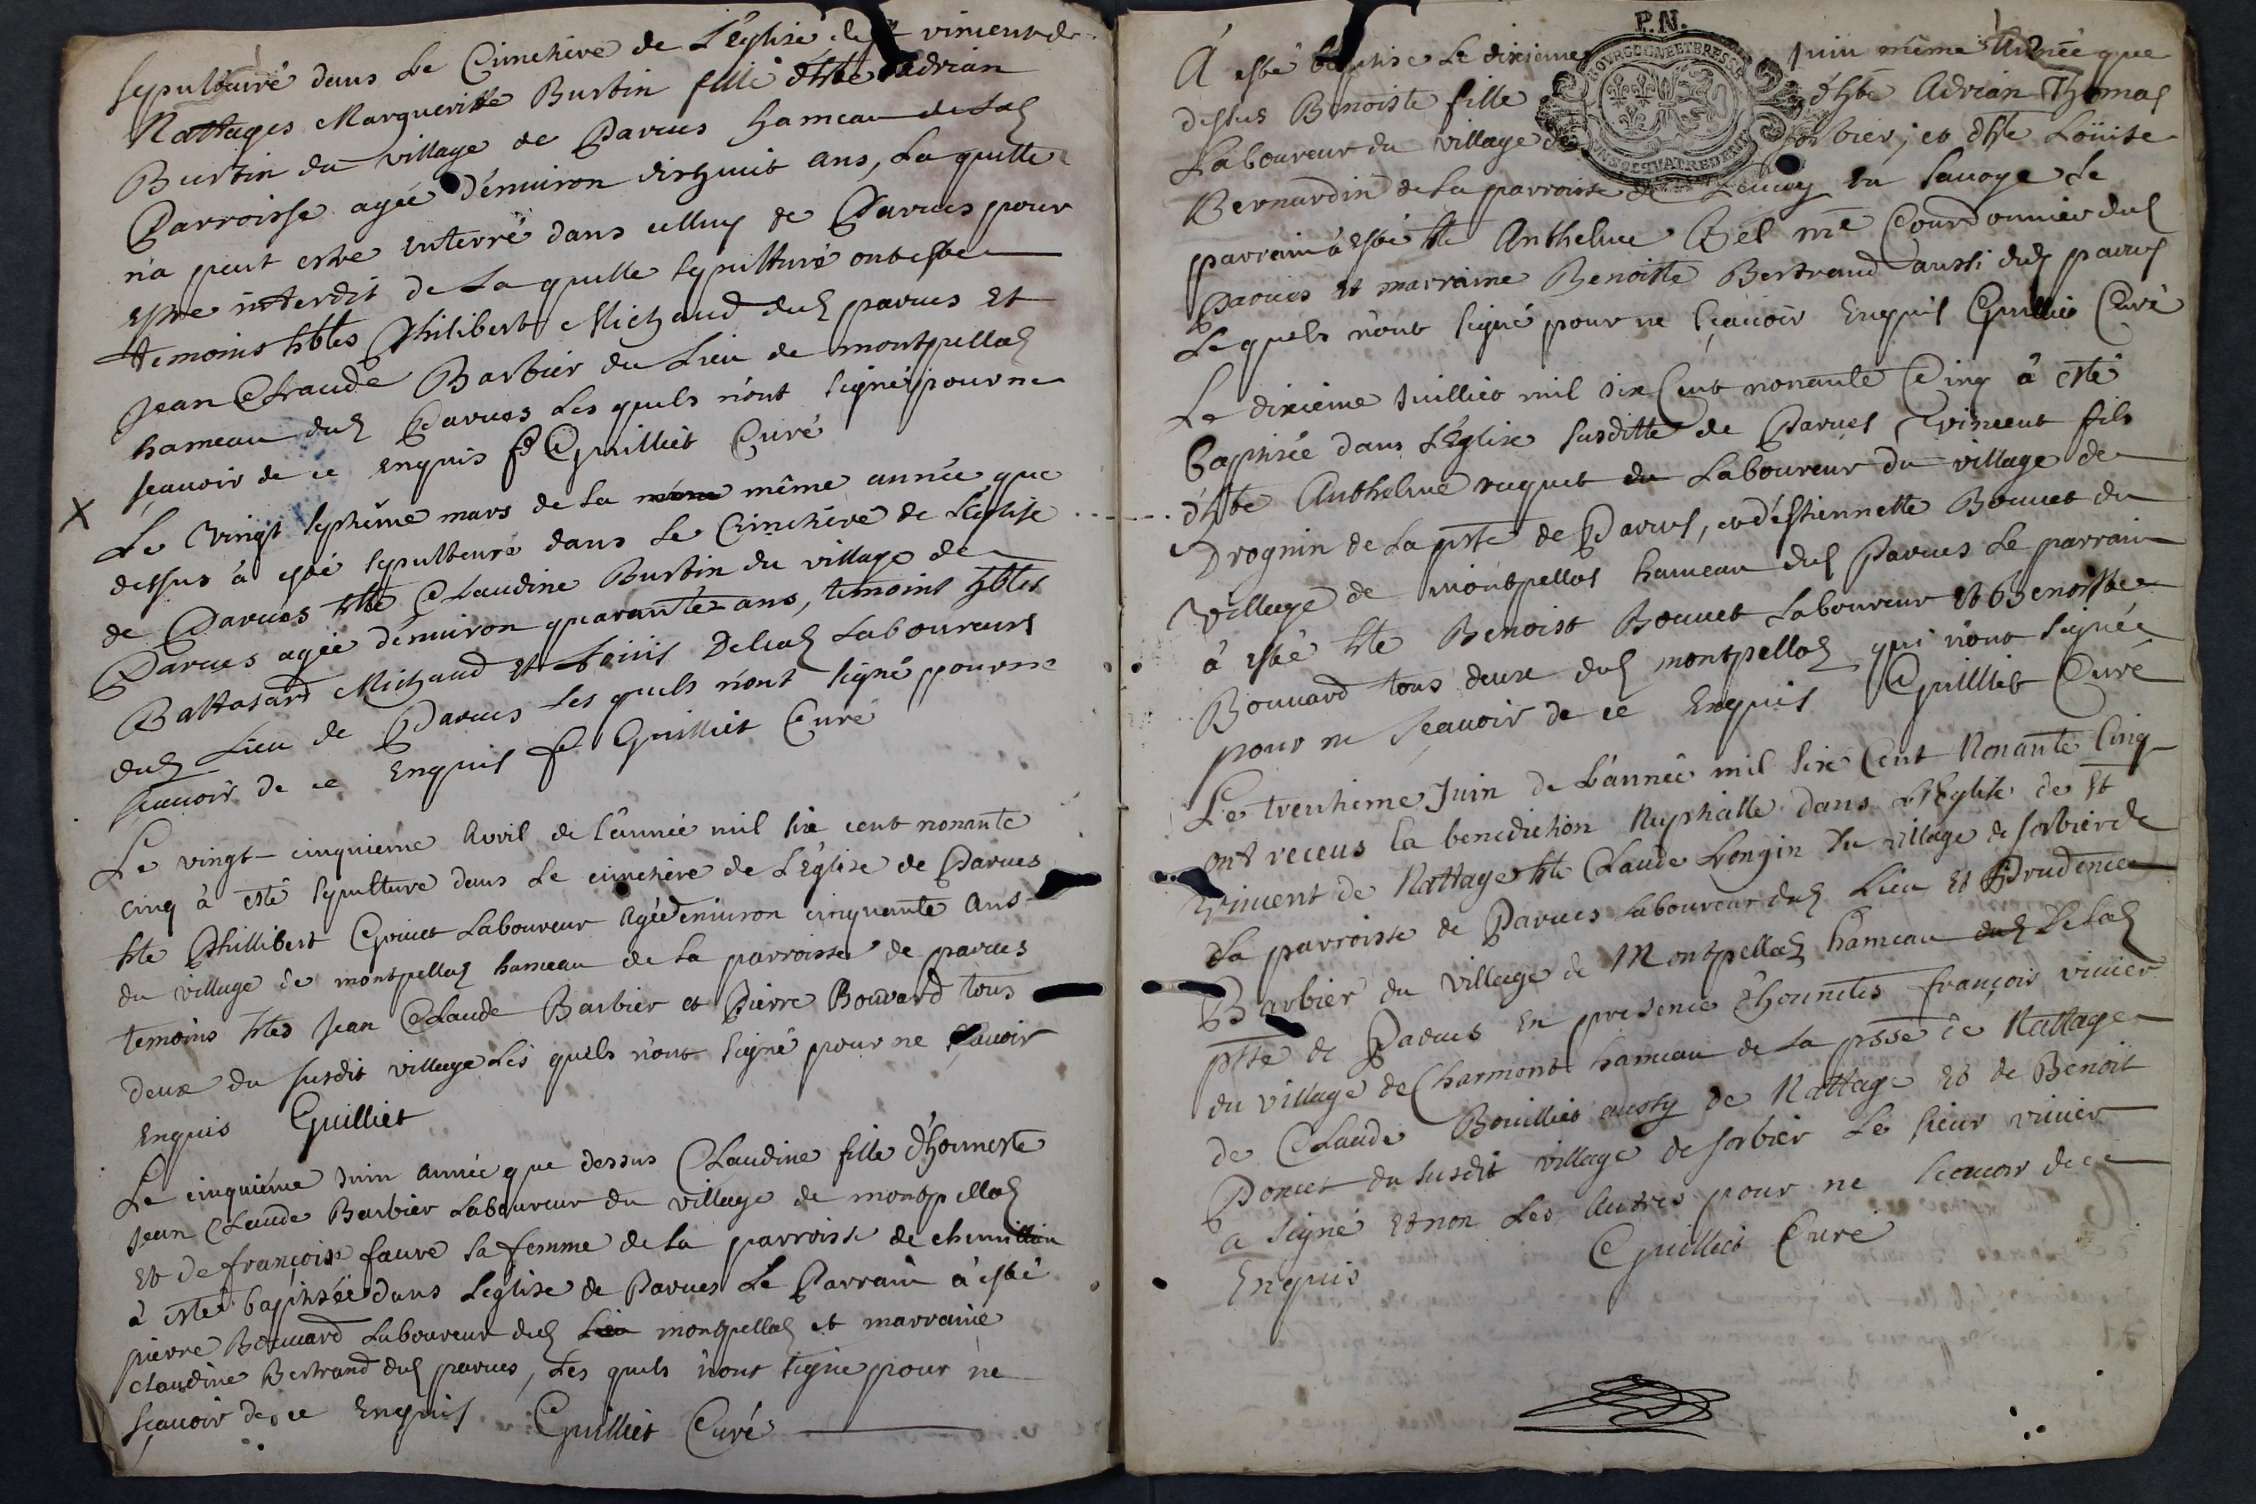 sepulturé dans Le Cimetiere de L'église de st vincent de
Nattages Margueritte Burtin fille d'hble Adrian
Burtin du village de Parues hameau de Lad
Parroisse agée d'enuiron dixhuit ans, La quelle
n'a peut estre enterré dans celluy de Parues pour
estre interdit de La quelle sepulture ont esté
temoins hbles Philibert Michaud dud parues et
Jean Claude Barbier du Lieu de montpellaz
hameau dud Parues Les quels n'ont signé pour ne
sçauoir de ce enquis f Guilliet Curé
X
Le vingt septième mars de La même année que
dessus à esté sepulturé dans Le Cimetiére de L'église
de Parues hble Claudine Burtin du village de
Parues agée d'enuiron quarante ans, temoins hbles
Baltasard Michaud et Louis Delcaz Laboureurs
dud Lieu de Parues Les quels n'ont signé pour ne
sçauoir de ce Enquis f Guilliet Curé
Le vingt cinquieme Avril de L'année mil six cent nonante
cinq à esté sepulture dans Le cimetiére de L'église de Parues
hble Phillibert Laboureur agée d'enuiron cinquante ans
du village de montpellaz hameau de La parroisse de parues
temoins hbles Jean Claude Barbier et Pierre Bouvard tous
deux du susdit village Les quels n'ont signé pour ne sçauoir
Enquis Guilliet
Le cinquiéme Juin année que dessus Claudine fille d'honneste
Jean Claude Barbier Laboureur du village de montpellaz
et de françoise faure sa femme de La parroisse de chemillieu
à esté baptisée dans Leglise de Parues Le Parrain à esté
pierre Bouuard Laboureur dud montpellaz et marraine
claudine Bertrand dud parues, Les quels n'ont signe pour ne
sçauoir de ce Enquis Guilliet Curé
P.N.
A esté baptisé Le dixieme Juin même Année que
dessus Benoiste fille d'hble Adrian Thomas
Laboureur du village de sorbier, et d'hble Loüise
Bernardin de La parroisse de en sauoye Le
parrain à esté hble Anthelme me Courdonnier dud
Parues et marraine Benoitte Bertrand aussi dud parues
Lequels n'ont signé pour ne sçauoir Enquis Guilliet Curé
Le dixieme Juilliet mil six Cent nonante Cinq à esté
baptisée dans L'Eglise susditte de Parues vincent fils
d'hble Anthelme ruquet Laboureur du village de
Drognin de La prse de Parues, et d'estiennette Bouuet du
village de montpellas hameau dud Parues Le parrain
à esté hle Benoist Bouuet Laboureur et Benoitte
Bouuard tous deux dud montpellaz qui n'ont signée
pour ne sçauoir de ce Enquis Guilliet Curé
Le trentieme Juin de L'année mil six Cent Nonante Cinq
ont receus la benediction Nuptialle dans L'Eglise de st
vincent de Nattage hle Claude Longin du village de sorbier de
La parroisse de Parues Laboureur dud Lieu et Prudence
Barbier du village de Montpellaz hameau de Lad
prse de Parues En presence d'honnetes françois viuier
du village de Charmont hameau de La prsse de Nattage
de Claude Bouilliet aussy de Nattage et de Benoit
Poncet du susdit village de sorbier Le sieur viuier
a signé et non Les Autres pour ne scauoir de ce
Enquis Guilliet Curé